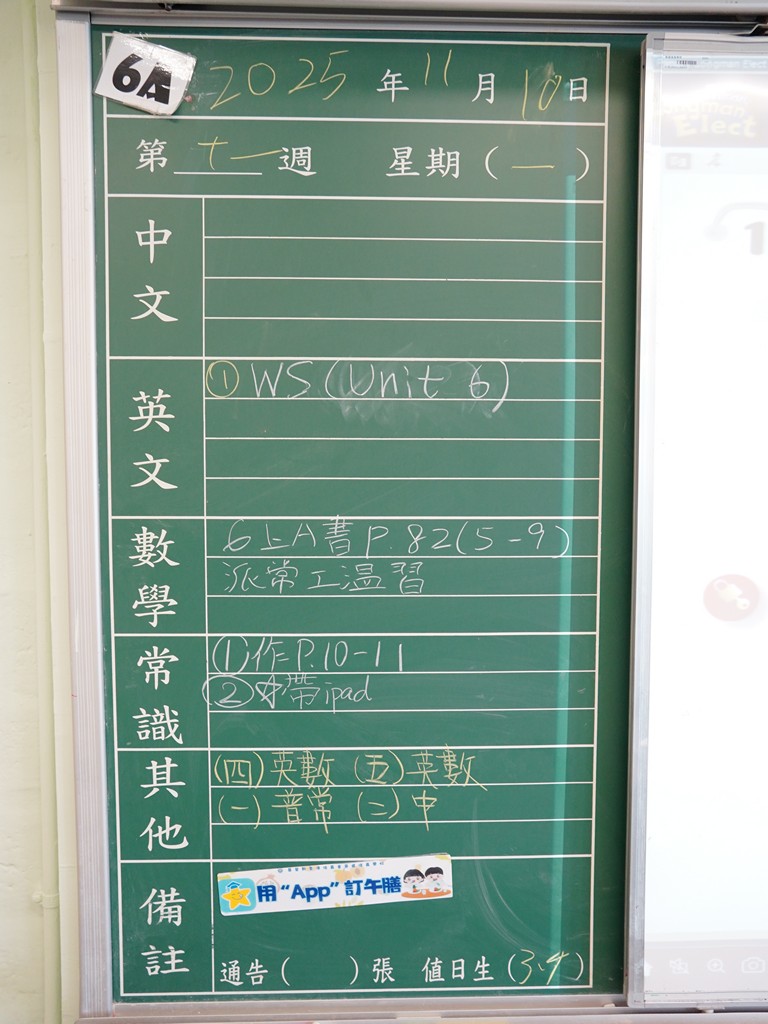 6A
2025年11月10日
第十一週 星期(一)
中文
英文
① WS (Unit 6)
數學
6上A書 P.82(5-9)
派常工温習
常識
①作P.10-11
②☆帶ipad
其他
(四)英數 (五)英數
(一)普常 (二)中
備註
用“App”訂午膳
通告( )張 值日生(3.4)
Elect
1